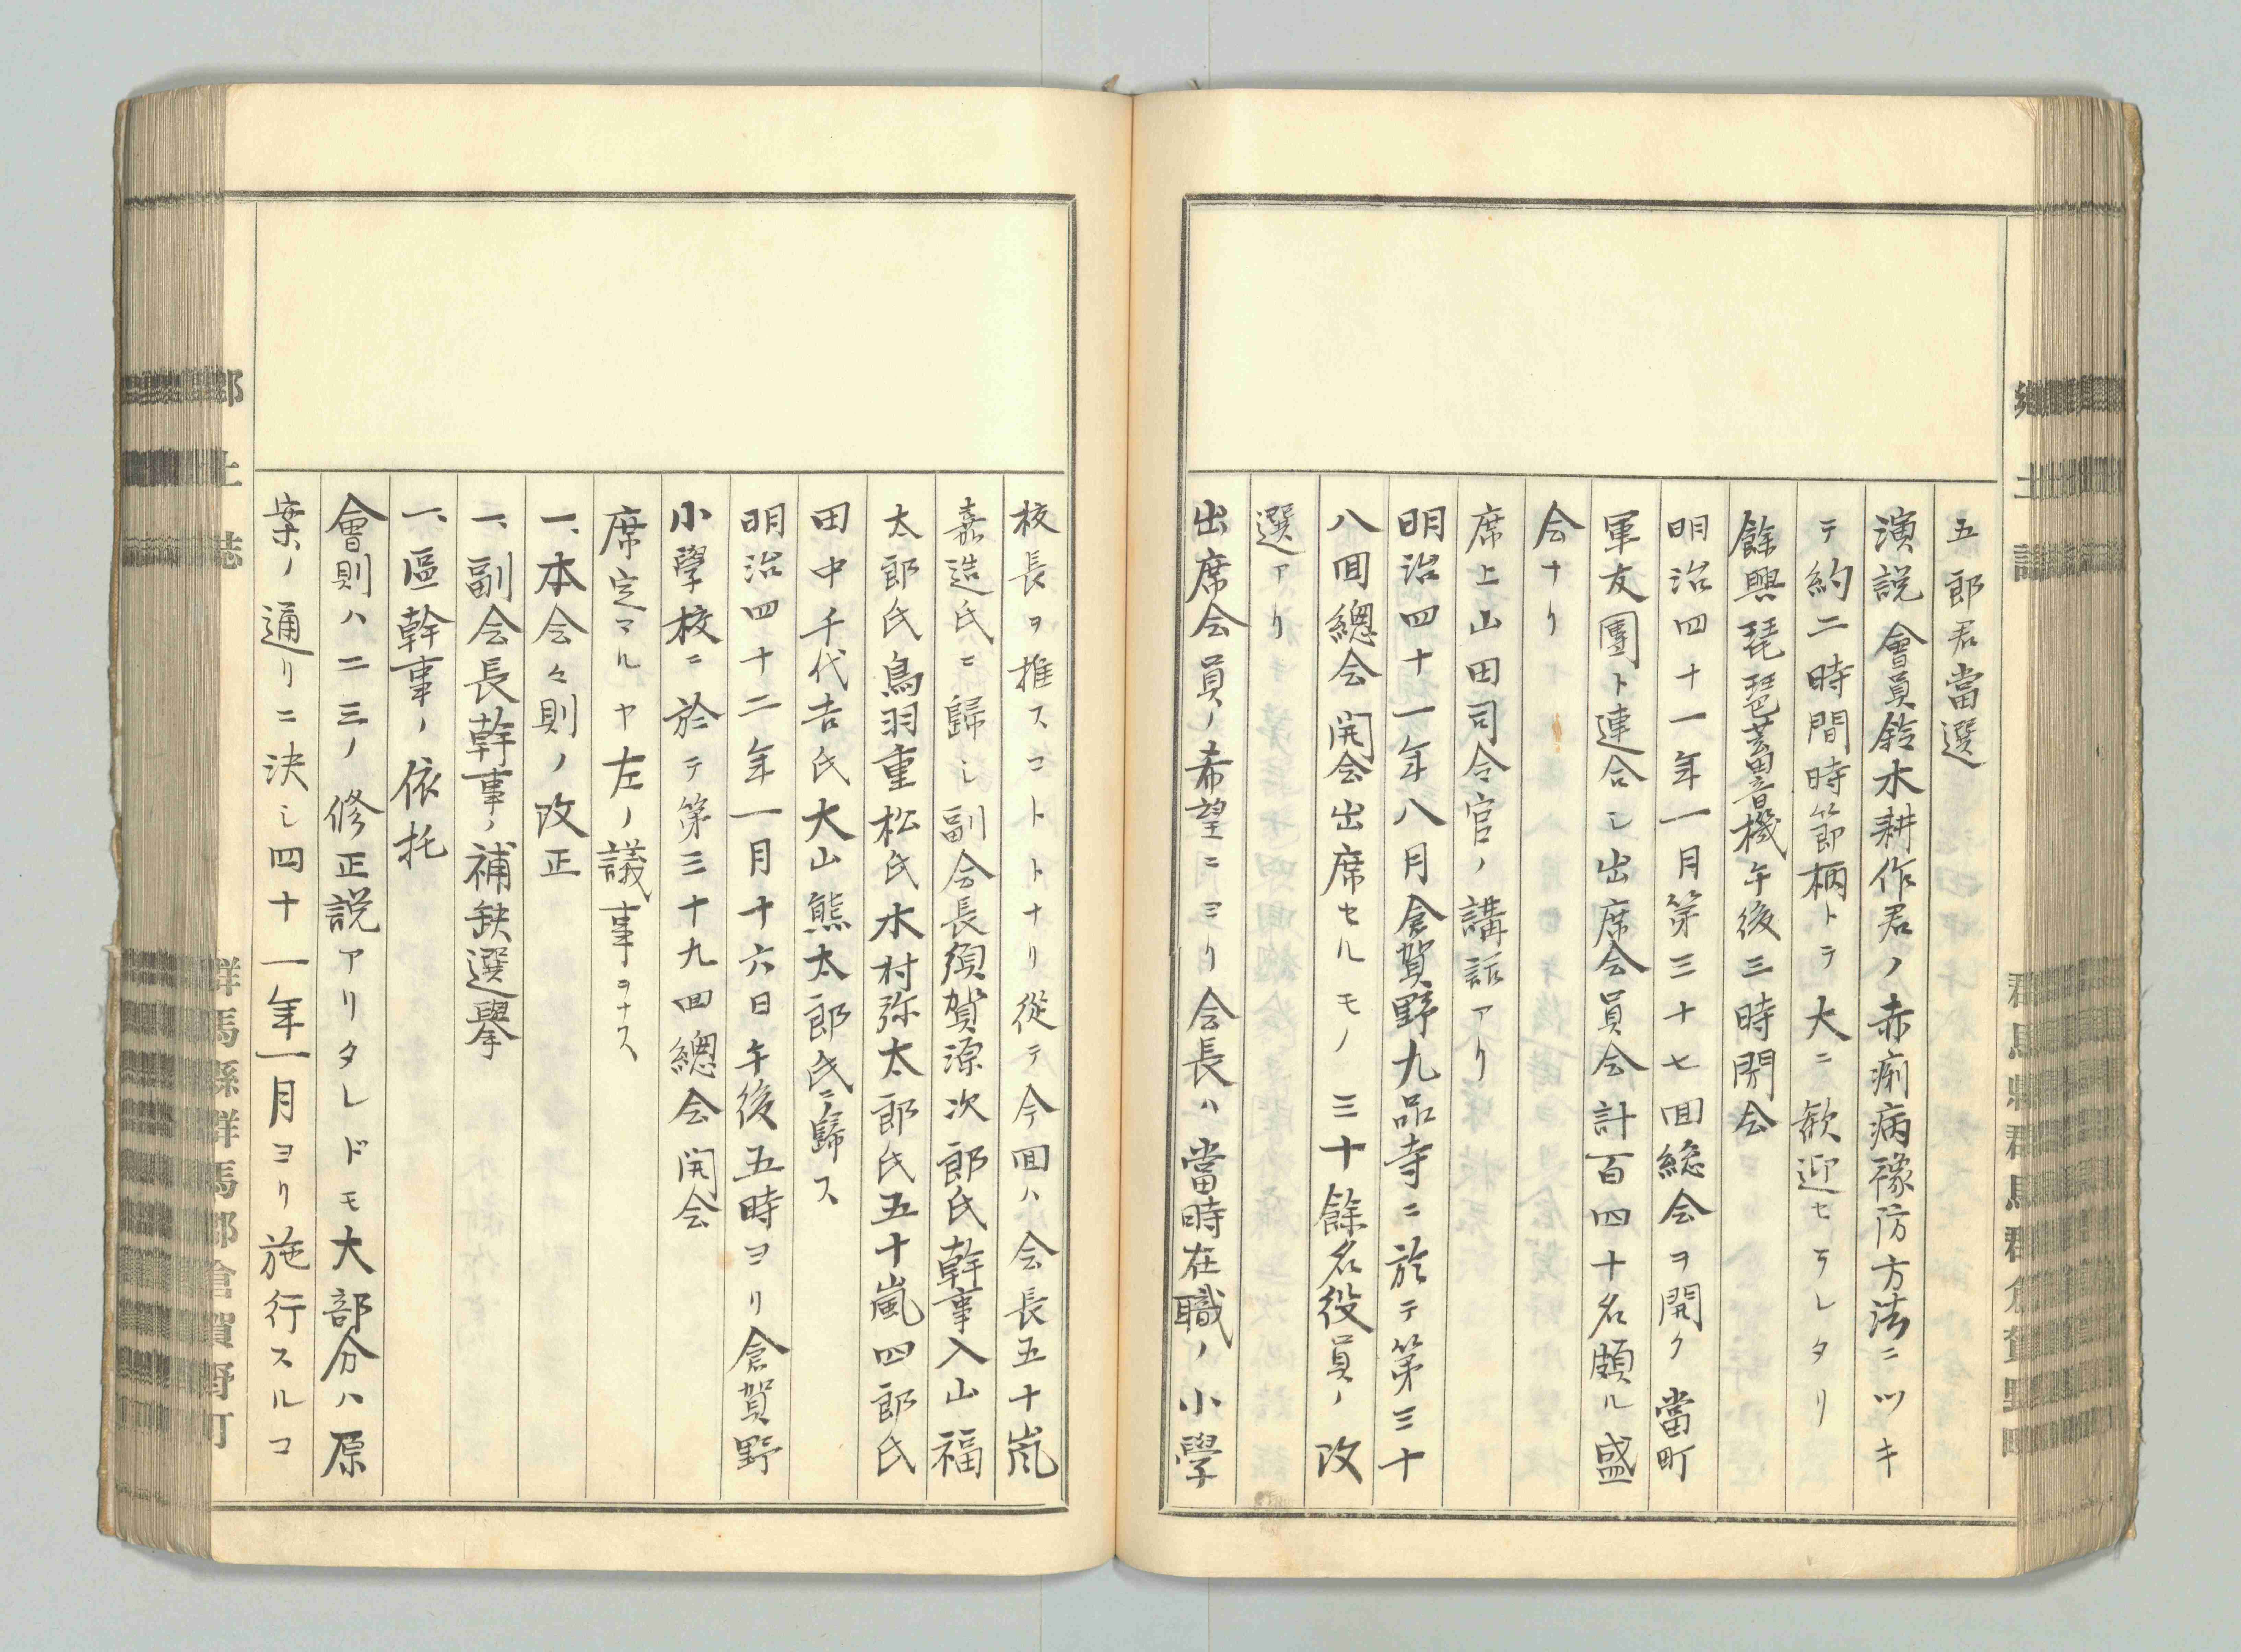 五郎君當選
演説 會員鈴木耕作君ノ赤痢病豫防方法ニツキ
テ約二時間時節柄トテ大ニ歓迎セラレタリ
餘興琵琶蓄音機午後三時閉会
明治四十一年一月第三十七回総会ヲ開ク 當町
軍友團ト連合シ出席会員会計百四十名頗ル盛
会ナリ
席上山田司令官ノ講話アリ
明治四十一年八月倉賀野九品寺ニ於テ第三十
八回總会開会出席セルモノ三十餘名役員ノ改
選アリ
出席会員ノ希望ニヨリ会長ハ當時在職ノ小學
校長ヲ推スコトトナリ従テ今回ハ会長五十嵐
嘉造氏ニ歸シ副会長須賀源次郎氏幹事入山福
太郎氏鳥羽重松氏木村弥太郎氏五十嵐四郎氏
田中千代吉氏大山熊太郎氏ニ歸ス
明治四十二年一月十六日午後五時ヨリ倉賀野
小學校ニ於テ第三十九回總会開会
席定マルヤ左ノ議事ヲナス
一、本会々則ノ改正
一、副会長幹事ノ補缺選擧
一、區幹事ノ依托
會則ハ二三ノ修正説アリタレドモ大部分ハ原
案ノ通リニ決シ四十一年一月ヨリ施行スルコ
郷土誌
群馬縣群馬郡倉賀野町